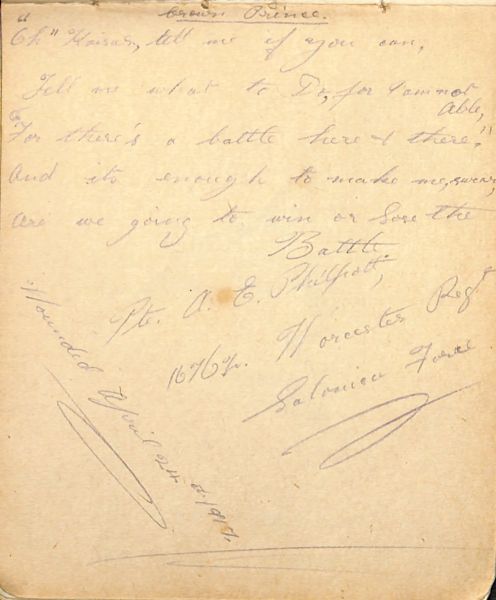 Crown Prince.
"Oh" Kaiser, tell me if you can,
Tell me what to Do, for I am not
Able,
For there's a battle here & there,"
And its enough to make me, swear,
Are we going to win or Lose the
Battle
Pte. A. E. Philpott,
Worcester Regt
Salonica Force
Wounded April 24th 1917.